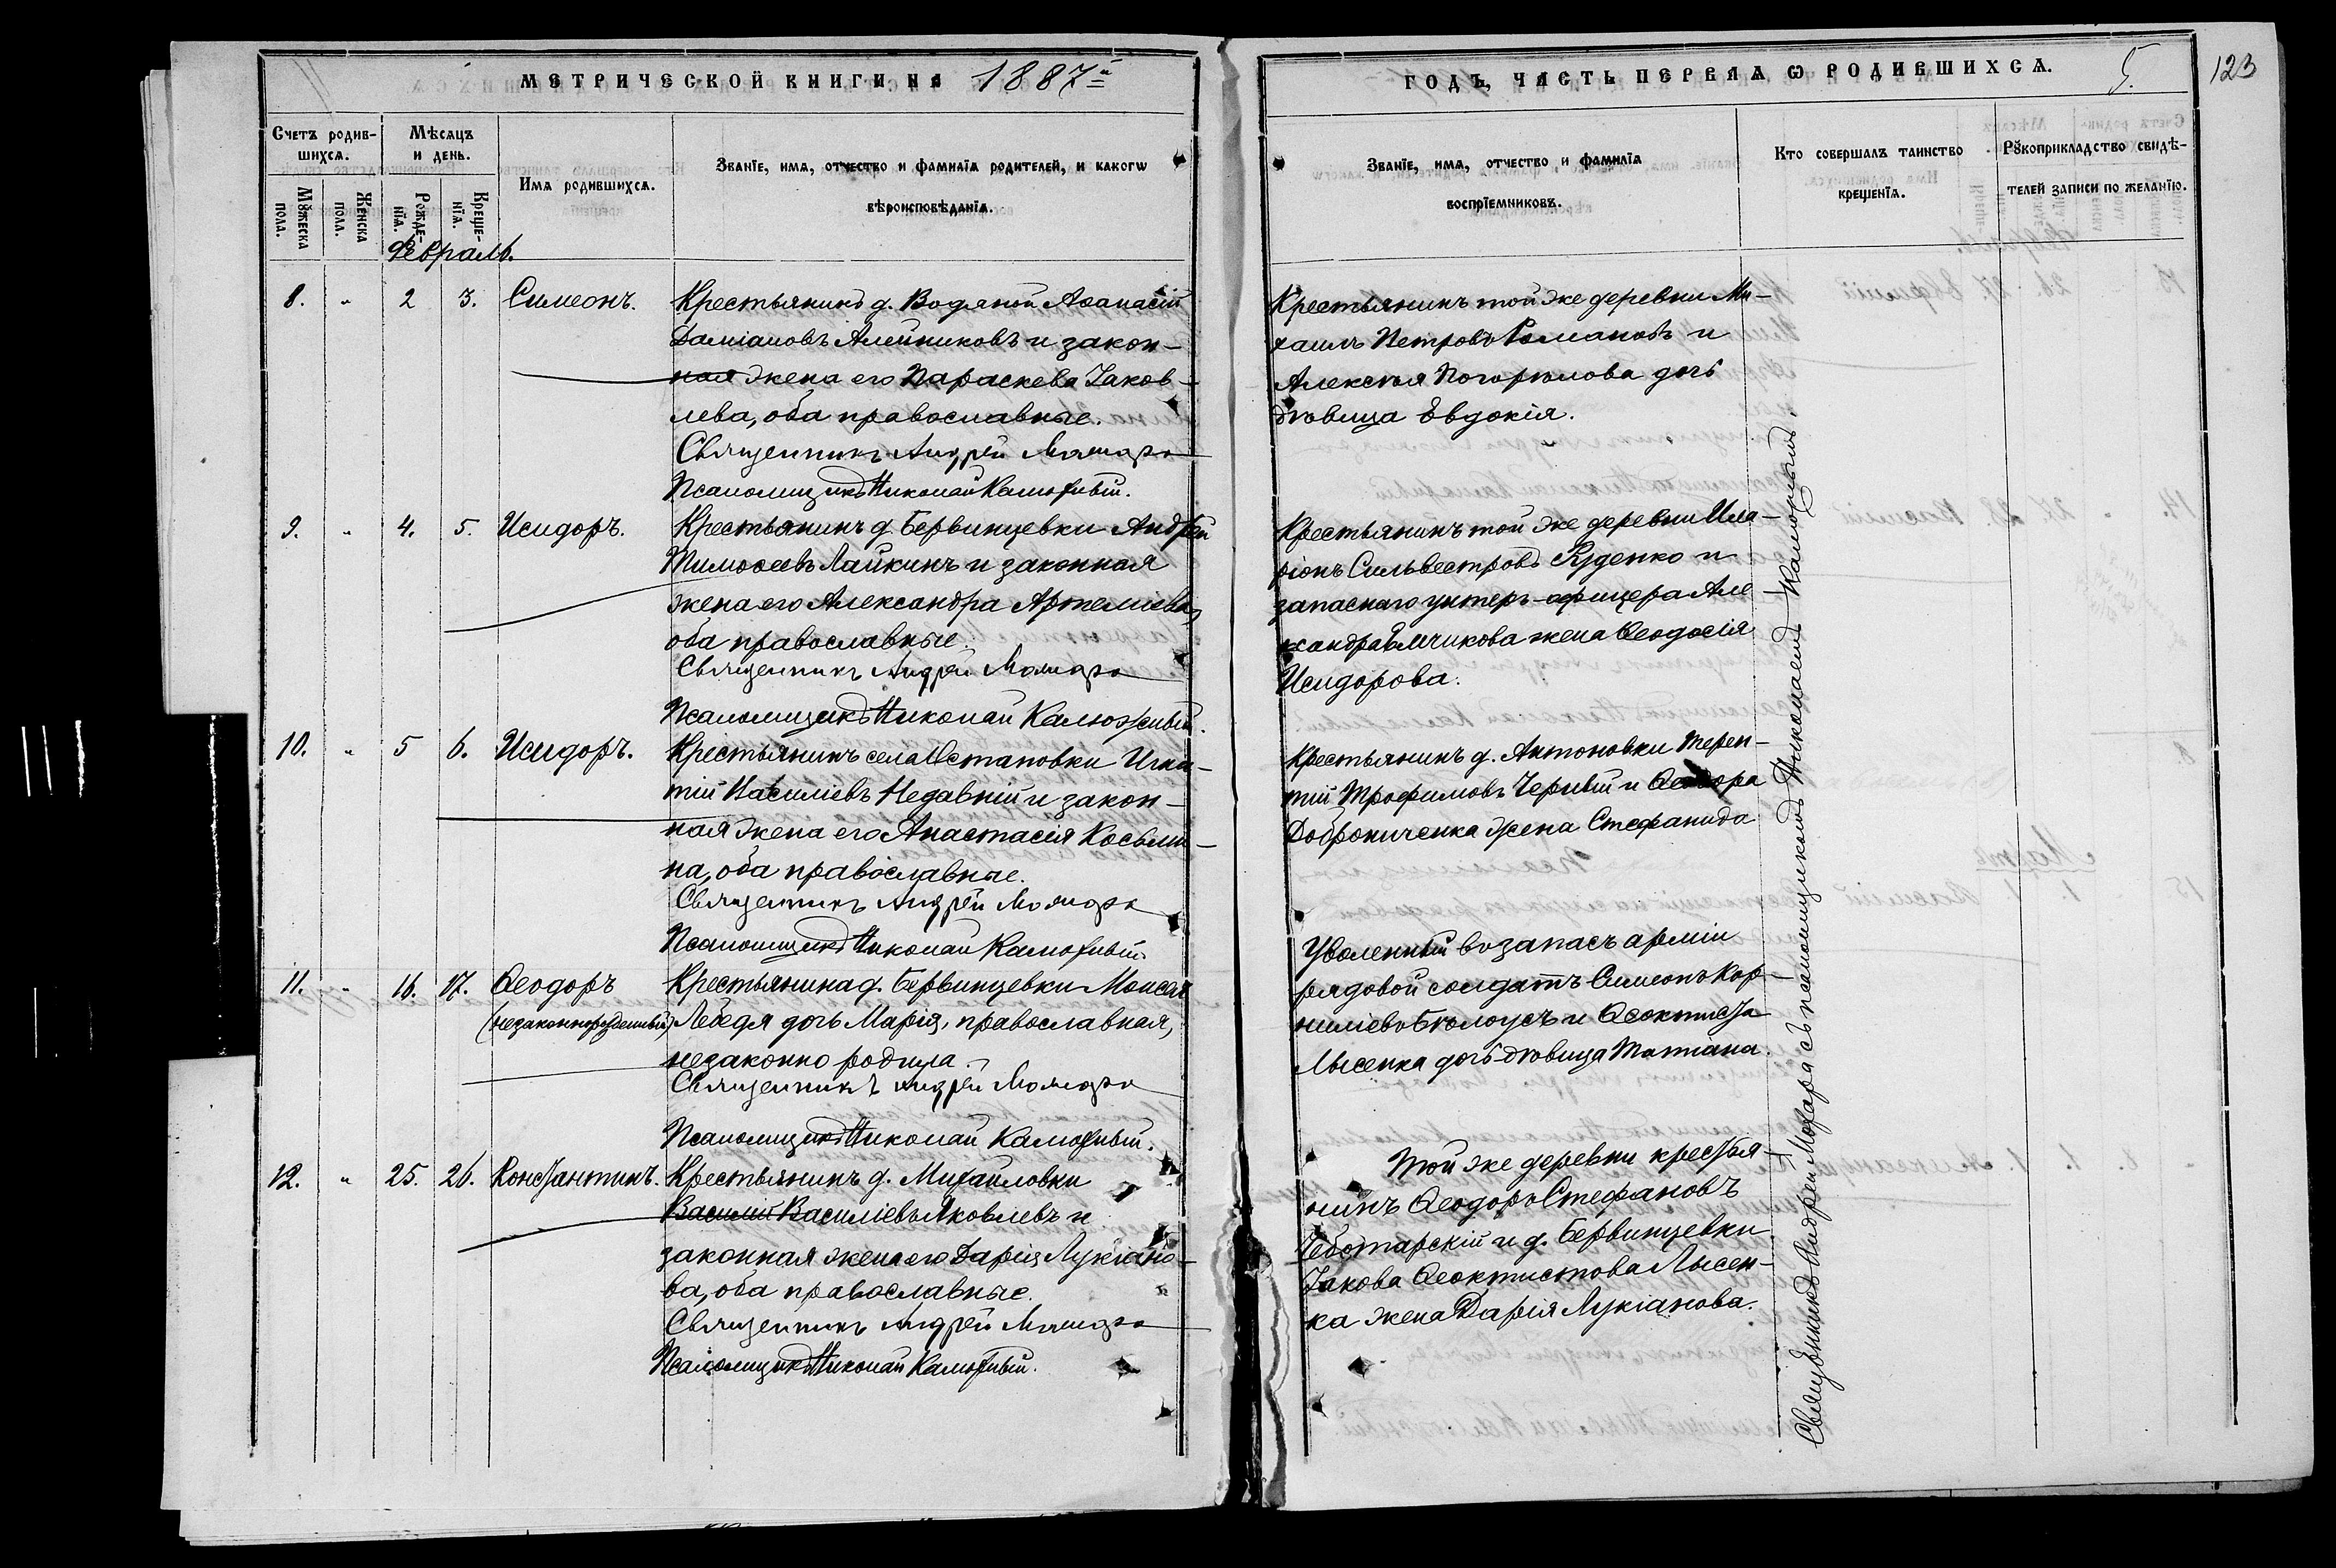 МЕТРИЧЕСКОЙ КНИГИ НА 1887й
ГОДЪ, ЧАСТЬ ПЕРВАЯ Ѡ РОДИВШИХСѦ.
5.
123
Счетъ родив-
шихсѧ.
Мѣсѧцъ
и день.
Мꙋжеска
пола.
Женска
пола.
Рожде-
нїѧ.
Креще-
нїѧ.
Имѧ родившихсѧ.
Званїе, имѧ, отчество и фамилїѧ родителей, и какогѡ
вѣроисповѣданїѧ.
Званїе, имѧ, отчество и фамилїѧ
воспрїемниковъ.
Кто совершалъ таинство
крещенїѧ.
Рꙋкоприкладство свидѣ-
телей записи по желанїю.
Февраль.
8. " 2 3. Симеонъ.
Крестьянинъ д. Водяной Аѳанасій
Даміановъ Алейниковъ и закон-
ная жена его Параскева Іаков-
лева, оба православные.
Священникъ АндрейМожара
Псаломщикъ Николай Калюжный.
Крестьянинъ той же деревни Ми-
хаилъ Петровъ Романовъ и
Алексѣя Погорѣлова дочь
дѣвица Евдокія.
9. " 4. 5. Исидоръ.
Крестьянинъ д. Бервинцевки Андрей
Тимоѳеевъ Лайкинъ и законная
жена его Александра Артеміева,
оба православные.
Священникъ Андрей Можара
Псаломщикъ Николай Калюжный.
Крестьянинъ той же деревни Ила-
ріонъ Сильвестровъ Руденко и
запаснаго унтеръ-офицера Але-
ксандра жена Ѳеодосія
Исидорова.
10. " 5 6. Исидоръ.
Крестьянинъ села Игна-
тій Василіевъ Недавній и закон-
ная жена его Анастасія Косьми-
на, оба православные.
Священникъ Андрей Можара
Псаломщикъ Николай Калюжный.
Крестьянинъ д. Антоновки Терен-
тій Трофимовъ Черный и Ѳеодора
Доброниченка жена Стефанида
11. " 16. 17. Ѳеодоръ
(незаконнорожденный)
Крестьянина д. Бервинцевки Моисея
Лебедя дочь Марія, православная,
незаконно родила.
Священникъ Андрей Можара
Псаломщикъ Николай Калюжный.
Уволенный въ запасъ арміи
рядовой солдатъ Симеонъ Кор-
ниліевъ Бѣлоусъ и Ѳеоктиста
Лысенка дочь дѣвица Татіана.
12. " 25. 26. Константинъ.
Крестьянинъ д. Михайловки
Василій Василіевъ Яковлевъ и
законная жена его Дарія Лукіано-
ва, оба православные.
Священникъ Андрей Можара
Псаломщикъ Николай Калюжный.
Той же деревни крестья-
нинъ Ѳеодоръ Стефановъ
Чеботарскій и д. Бервинцевки
Іакова Ѳеоктистова Лысен-
ка жена Дарія Лукіанова.
Священникъ Андрей Можара съ псаломщикомъ Николаемъ Калюжнымъ.